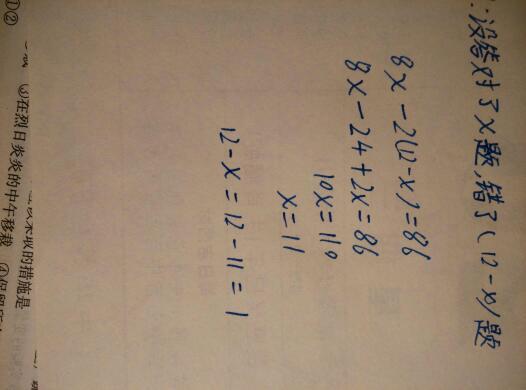 :没答对了x题,错了(12-x)题
8x-2(12-x)=86
8x-24+2x=86
10x=110
x=11
12-x=12-11=1
取的措施是
③在烈日炎炎的中午移栽
①②